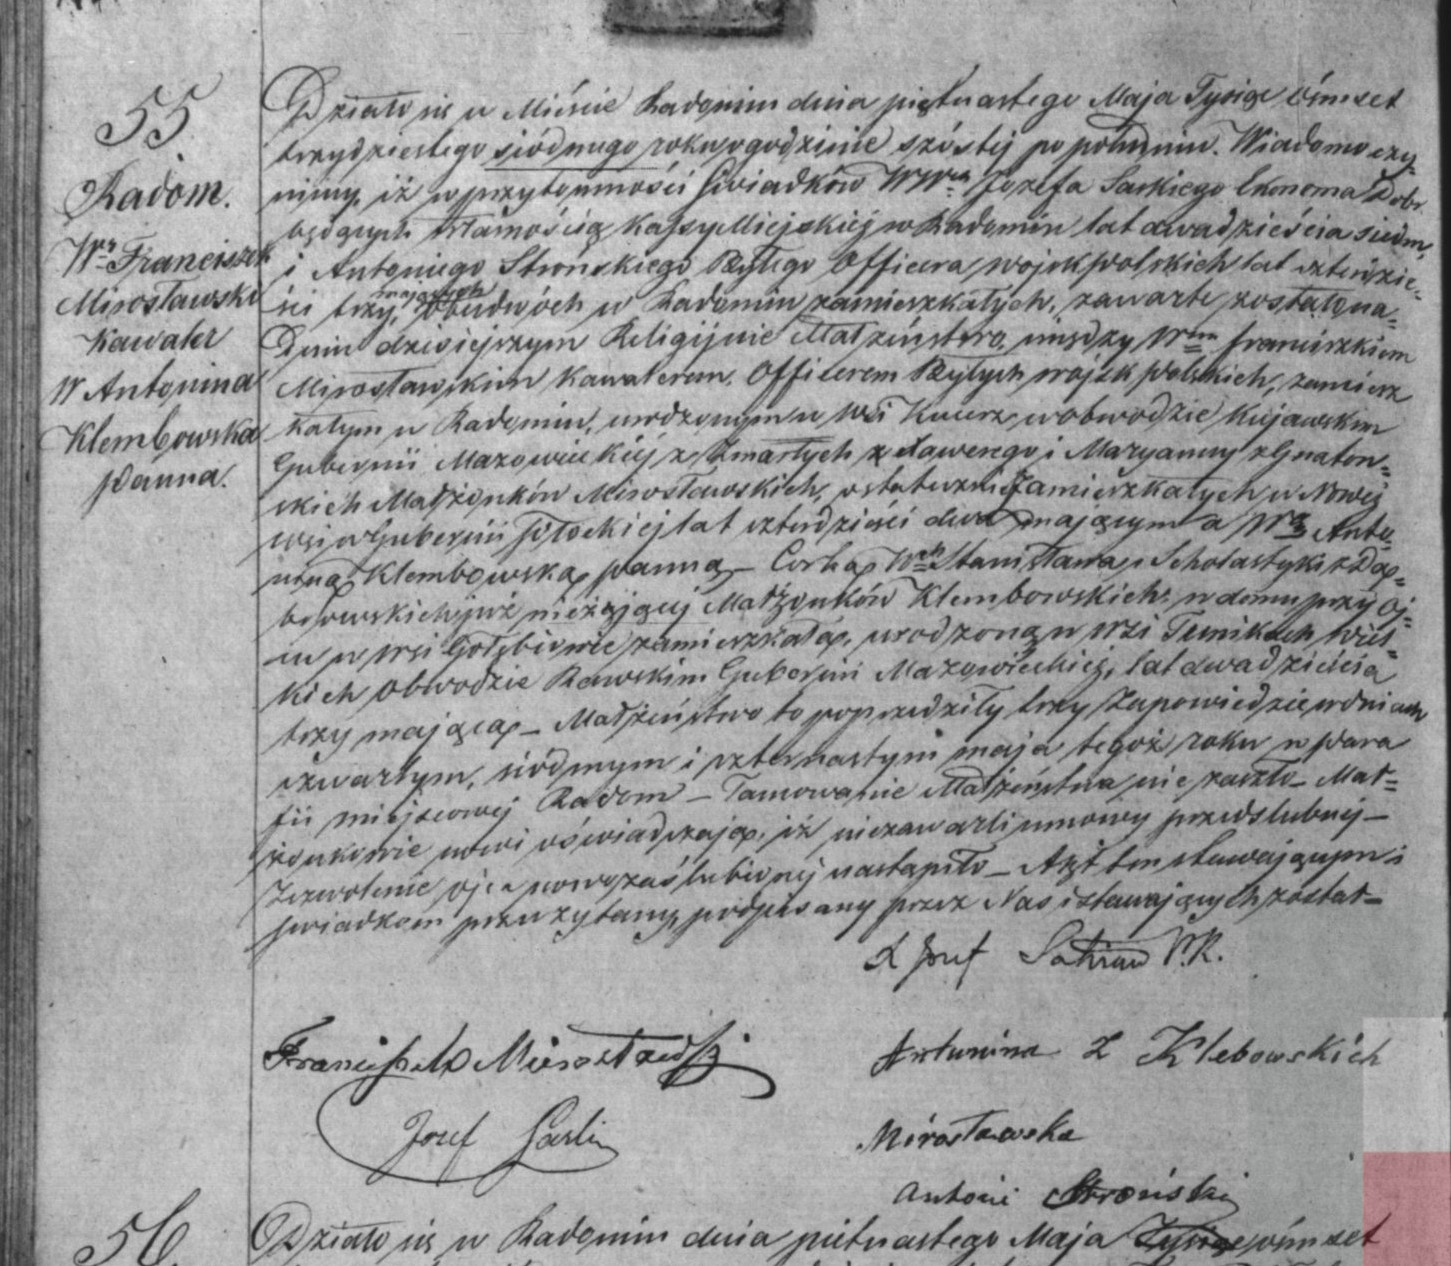 55
Radom.
Wny Franciszek
Mirosławski
Kawaler
W Antonina
Klembowska
panna.
Działo się w Mieście Radomiu dnia piętnastego Maja Tysiąc ośmset
trzydziestego siódmego roku o godzinie szóstej po południu. Wiadomo czy=
nimy, iż w przytomności Świadków WWch Jozefa Saskiego Ekonoma Dobr
będących własnością Kassy Miejskiej w Radomiu lat dwadzieścia siedm,
i Antoniego Stronskiego Byłego Officera wojsk polskich lat czterdzie=
ści trzy, mających obudwóch w Radomiu zamieszkałych, zawarte zostało na=
Dniu dzisiejszym Religijnie Małżeństwo, między Wnm Franciszkiem
Mirosławskim Kawalerem, Officerem Byłych wojsk polskich, zamiesz
kałym w Radomiu, urodzonym w Wsi w obwodzie Kujawskim
Gubernii Mazowieckiej z Zmarłych Xawerego i Maryanny z Gnaton=
skich Małżonków Mirosławskich, ostatecznie Zamieszkałych w Nowej
wsi w Gubernii Płockiej lat czterdzieści dwa mającym a Wną Anto=
niną Klembowską panną – Corką Wch Stanisława i Scholastyki z Dą=
browskich już nieżyjącej Małżonków Klembowskich w domu przy Oj=
cu w wsi Gołębiowie zamieszkałą, urodzoną w Wsi Wiel=
kich Obwodzie Rawskim Gubernii Mazowieckiej, lat dwadzieścia
trzy mającą – Małżeństwo to poprzedziły trzy Zapowiedzie w dniach
czwartym, siódmym i czternastym maja tegoż roku w para
fii miejscowej Radom – Tamowanie Małżeństwa nie zaszło – Mał=
żonkowie nowi oświadczają, iż niezawarli umowy przedślubnej –
Zezwolenie ojca nowozaślubionej nastąpiło – Akt ten stawającym i
świadkom przeczytany, podpisany przez Nas i stawających został –
X Jozef
Franciszek Mirosławski
Antonina z Klebowskich
Jozef Saski
Mirosławska
Antoni Stroński
56.
Działo się w Radomiu dnia pietnastego Maja Tysiąc ośmset